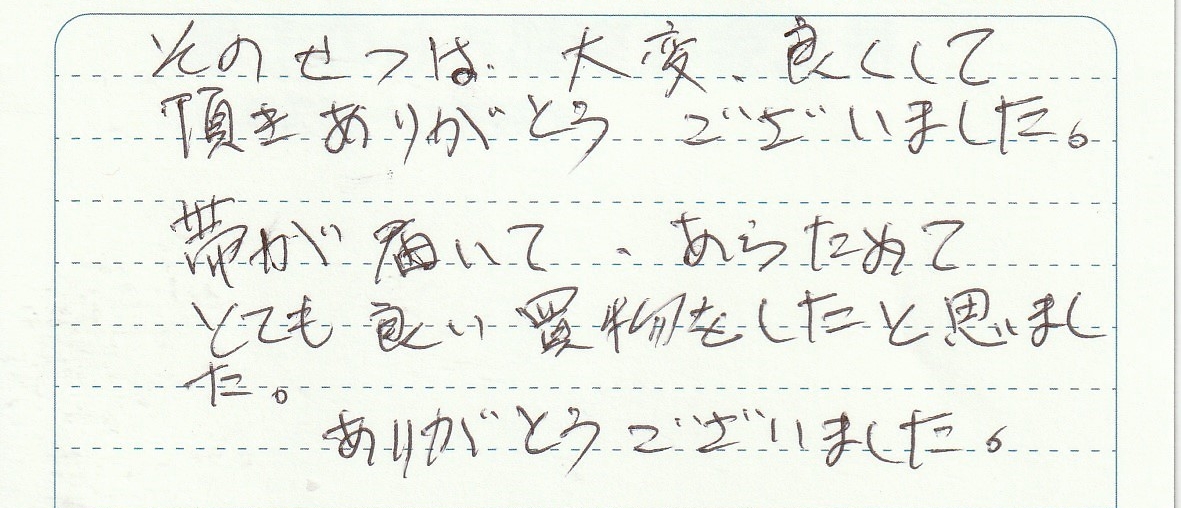 そのせつは、大変、良くして
頂きありがとう ございました。
帯が届いて、あらためて
とても良い買物をしたと思いまし
た。
ありがとうございました。